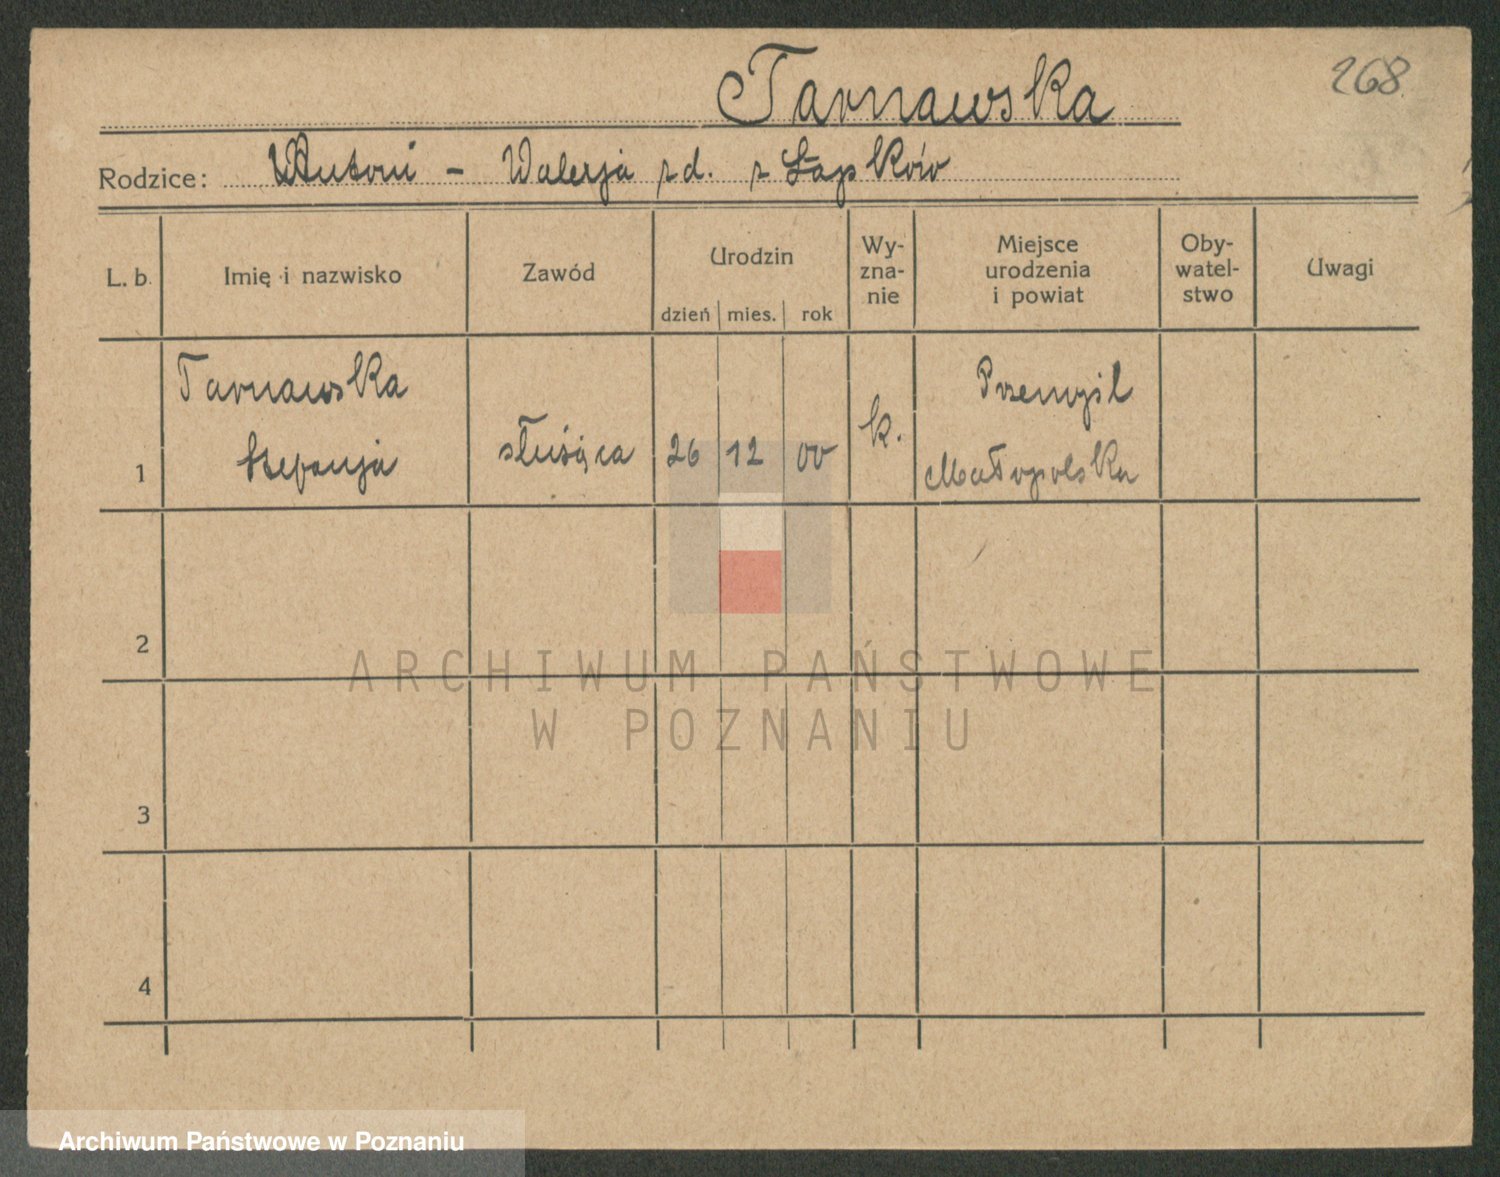 268
Tarnawska
Rodzice: Antoni - Walerja zd. z Łapków
L. b. Imię i nazwisko Zawód Urodzin Wy- Miejsce Oby- Uwagi
zna- urodzenia watel-
nie i powiat stwo
dzień mies. rok
Tarnawska Przemyśl
1 Stefanja służąca 26 12 00 k. Małopolska
2
3
4
ARCHIWUM PAŃSTWOWE
W POZNANIU
Archiwum Państwowe w Poznaniu